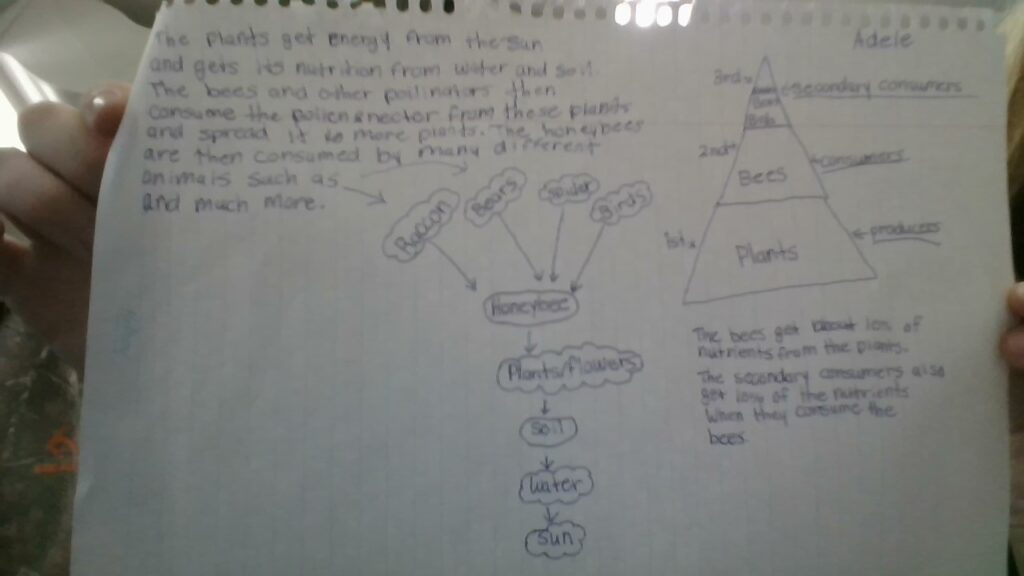 The plants get energy from the sun
and gets its nutrition from water and soil.
The bees and other pollinators then
consume the pollen & nector from these plants
and spread it to more plants. The honeybees
are then consumed by many different
animals such as
and much more.
Raccon
Bears
Spider
Birds
Honeybee
Plants/flowers
soil
water
sun
Adele
3rd
secondary consumers
2nd
Bees
consumers
1st
Plants
producers
The bees get about 10% of
nutrients from the plants.
The secondary consumers also
get 10% of the nutrients
when they consume the
bees